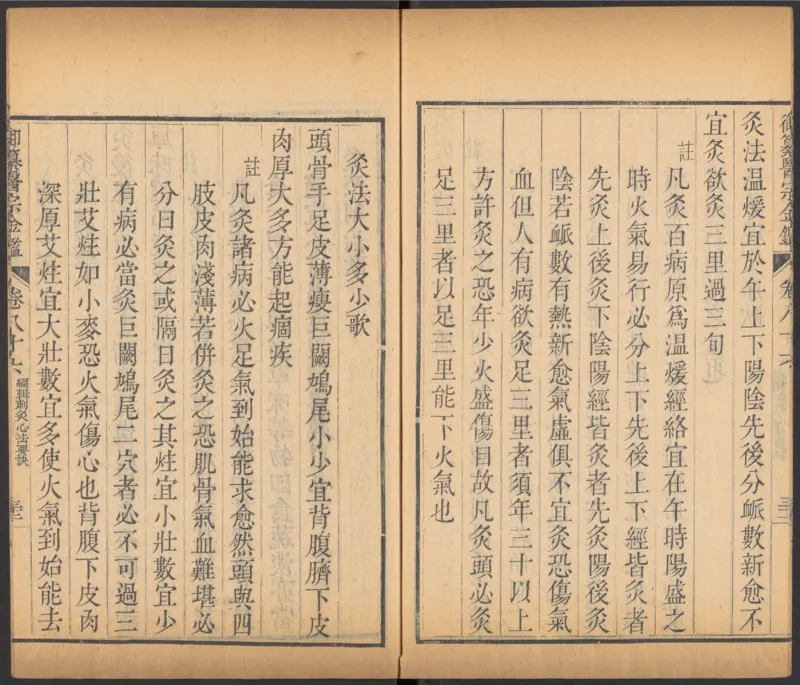 御纂醫宗金鑑
卷八十六
灸法溫煖宜於午上下陽陰先後分脈數新愈不
宜灸欲灸三里過三旬
註
凡灸百病原爲溫煖經絡宜在午時陽盛之
時火氣易行必分上下先後上下經皆灸者
先灸上後灸下陰陽經皆灸者先灸陽後灸
陰若脈數有熱新愈氣虛俱不宜灸恐傷氣
血但人有病欲灸足三里者須年三十以上
方許灸之恐年少火盛傷目故凡灸頭必灸
足三里者以足三里能下火氣也
灸法大小多少歌
頭骨手足皮薄瘦巨闕鳩尾小少宜背腹臍下皮
肉厚大多方能起痼疾
註
凡灸諸病必火足氣到始能求愈然頭與四
肢皮肉淺薄若併灸之恐肌骨氣血難堪必
分日灸之或隔日灸之其炷宜小壯數宜少
有病必當灸巨闕鳩尾二穴者必不可過三
壯艾炷如小麥恐火氣傷心也背腹下皮肉
深厚艾炷宜大壯數宜多使火氣到始能去
御纂醫宗金鑑
卷八十六
編輯刺灸心法要訣